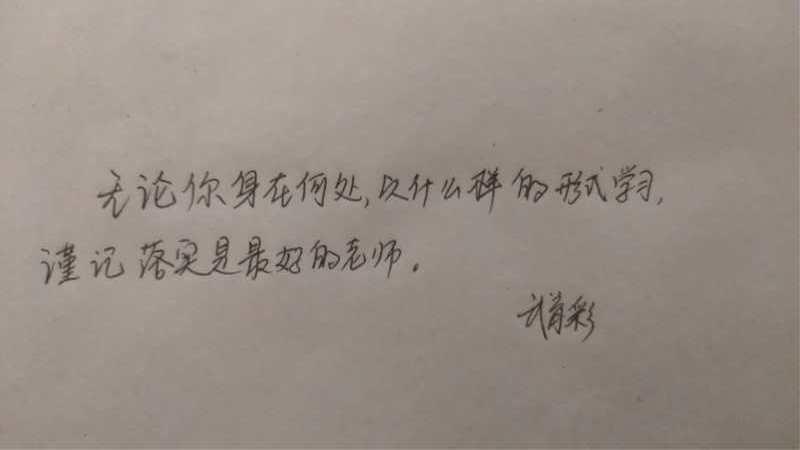 无论你身在何处,以什么样的形式学习,
谨记落实是最好的老师。